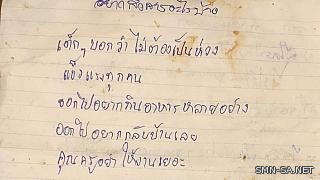 อยากสื่อสารอะไรบ้าง
เด็กๆ บอกว่า ไม่ต้องเป็นห่วง
แข็งแรงทุกคน
ออกไปอยากกินอาหารหลายอย่าง
ออกไปอยากกลับบ้านเลย
คุณครูอย่าให้งานเยอะ
SMN-SA.NET